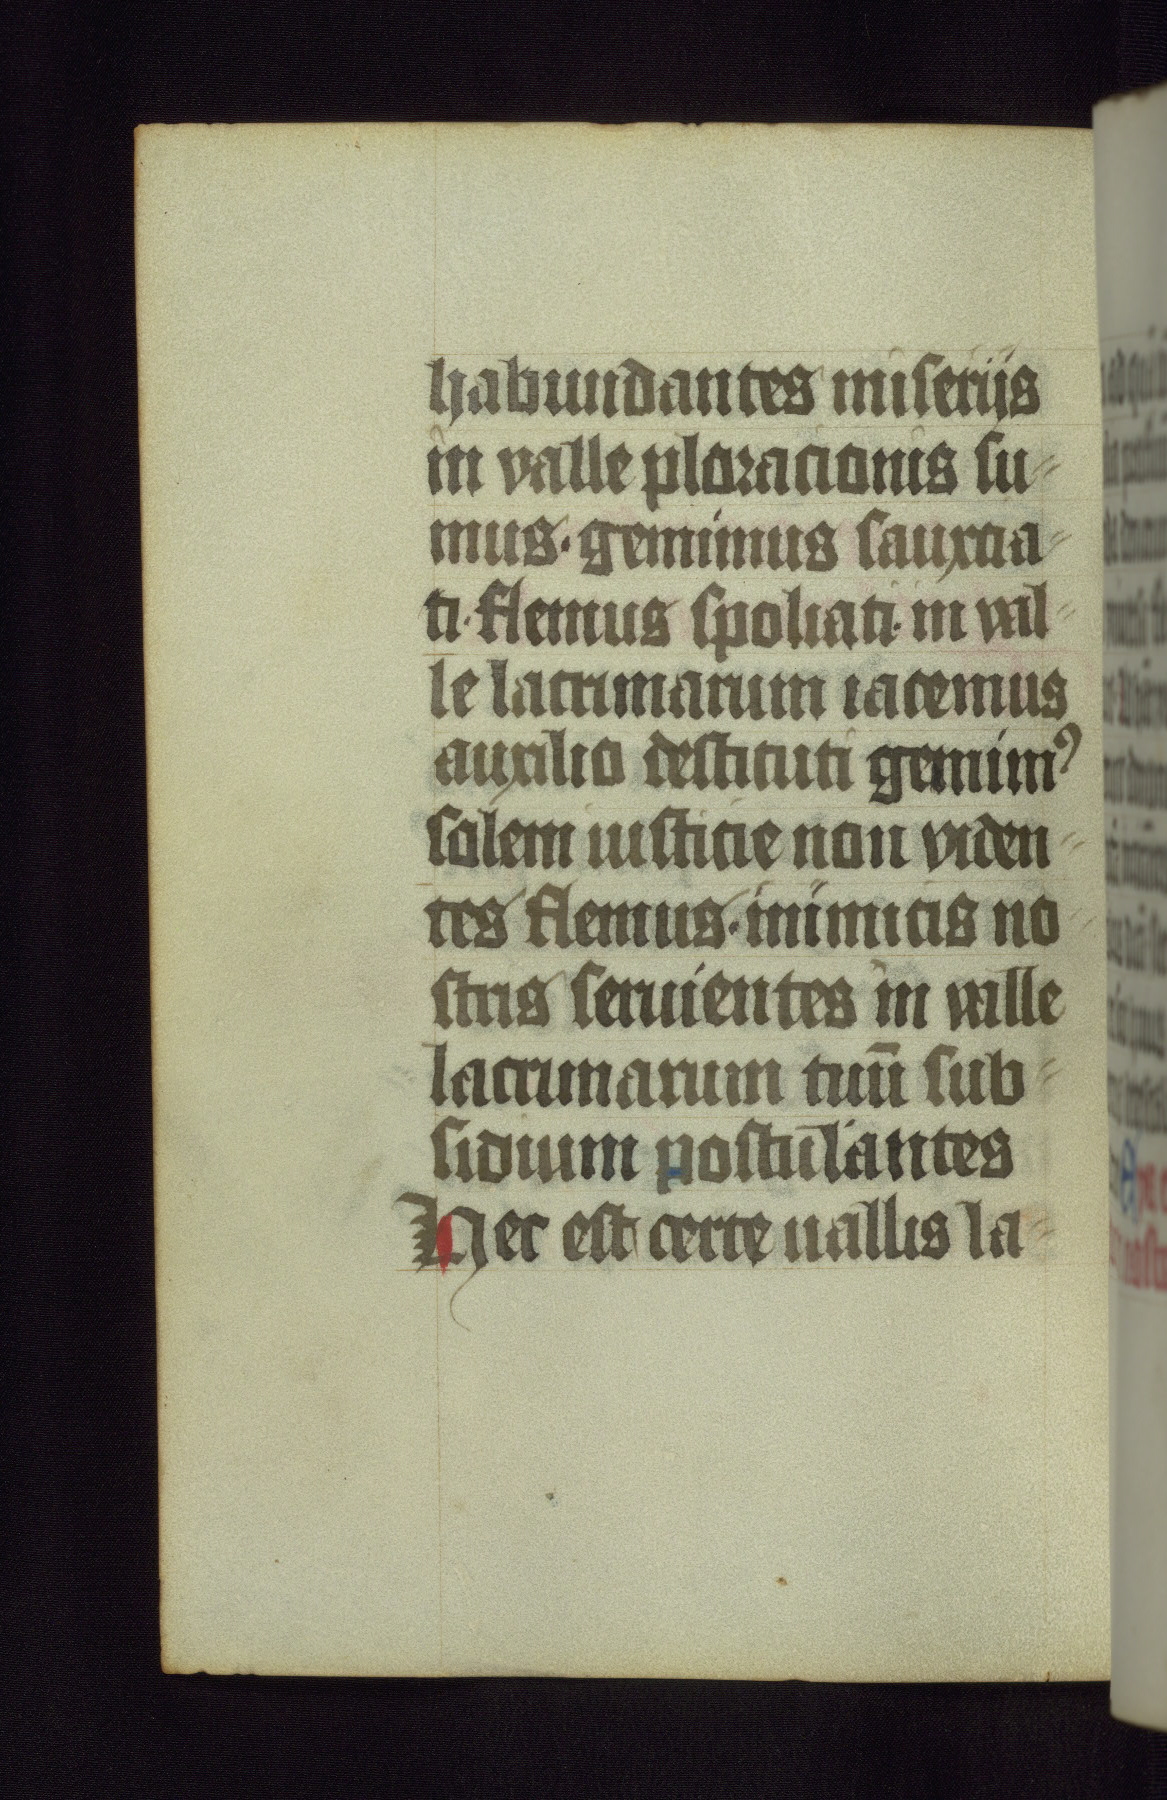 habundantes miserijs
in valle ploracionis su-
mus. gemimus sauxcia-
ti. flemus spoliati. in val-
le lacrimarum iacemus
auxilio destituti gemimꝰ
solem iusticie non viden-
tes flemus. inimicis no-
stris seruientes in valle
lacrimarum tuū sub-
sidium postulantes
Hec est certe uallis la-